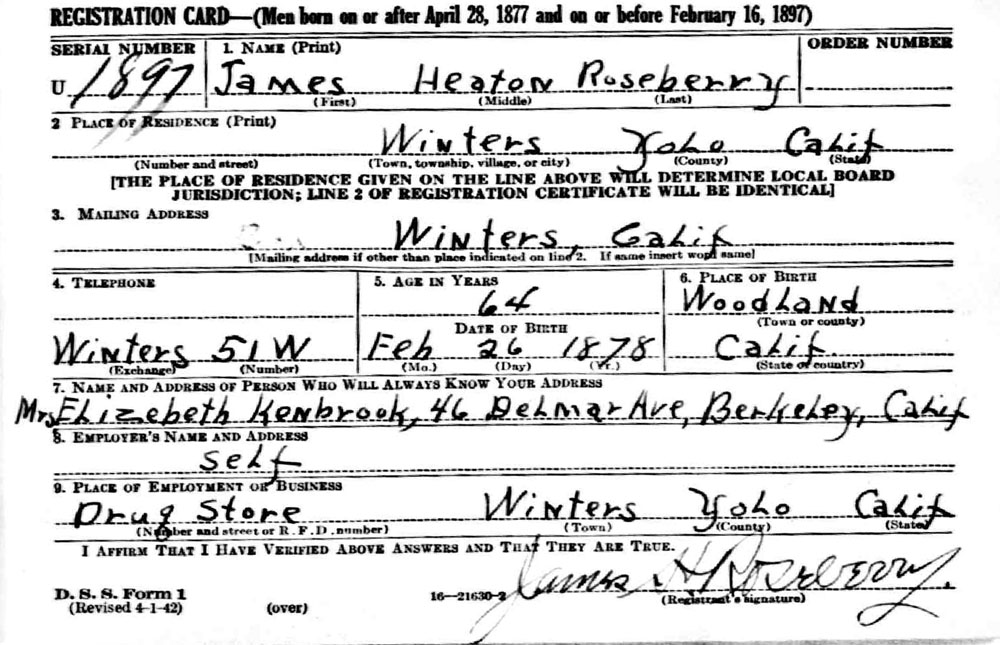 REGISTRATION CARD—(Men born on or after April 28, 1877 and on or before February 16, 1897)
SERIAL NUMBER 1. NAME (Print) ORDER NUMBER
U 1897 James Heaton Roseberry
(First) (Middle) (Last)
2 PLACE OF RESIDENCE (Print)
Winters Yolo Calif
(Number and street) (Town, township, village, or city) (County) (State)
[THE PLACE OF RESIDENCE GIVEN ON THE LINE ABOVE WILL DETERMINE LOCAL BOARD
JURISDICTION; LINE 2 OF REGISTRATION CERTIFICATE WILL BE IDENTICAL]
3. MAILING ADDRESS
Winters, Calif
[Mailing address if other than place indicated on line 2. If same insert word same]
4. TELEPHONE 5. AGE IN YEARS 6. PLACE OF BIRTH
64 Woodland
DATE OF BIRTH (Town or county)
Winters 51W Feb 26 1878 Calif.
(Exchange) (Number) (Mo.) (Day) (Yr.) (State or country)
7. NAME AND ADDRESS OF PERSON WHO WILL ALWAYS KNOW YOUR ADDRESS
Mrs Elizebeth Kenbrook, 46 Delmar Ave, Berkeley, Calif
8. EMPLOYER'S NAME AND ADDRESS
Self
9. PLACE OF EMPLOYMENT OR BUSINESS
Drug Store Winters Yolo Calif
(Number and street or R. F. D. number) (Town) (County) (State)
I AFFIRM THAT I HAVE VERIFIED ABOVE ANSWERS AND THAT THEY ARE TRUE.
James H Roseberry.
D. S. S. Form 1 16—21630-2 (Registrant's signature)
(Revised 4-1-42) (over)